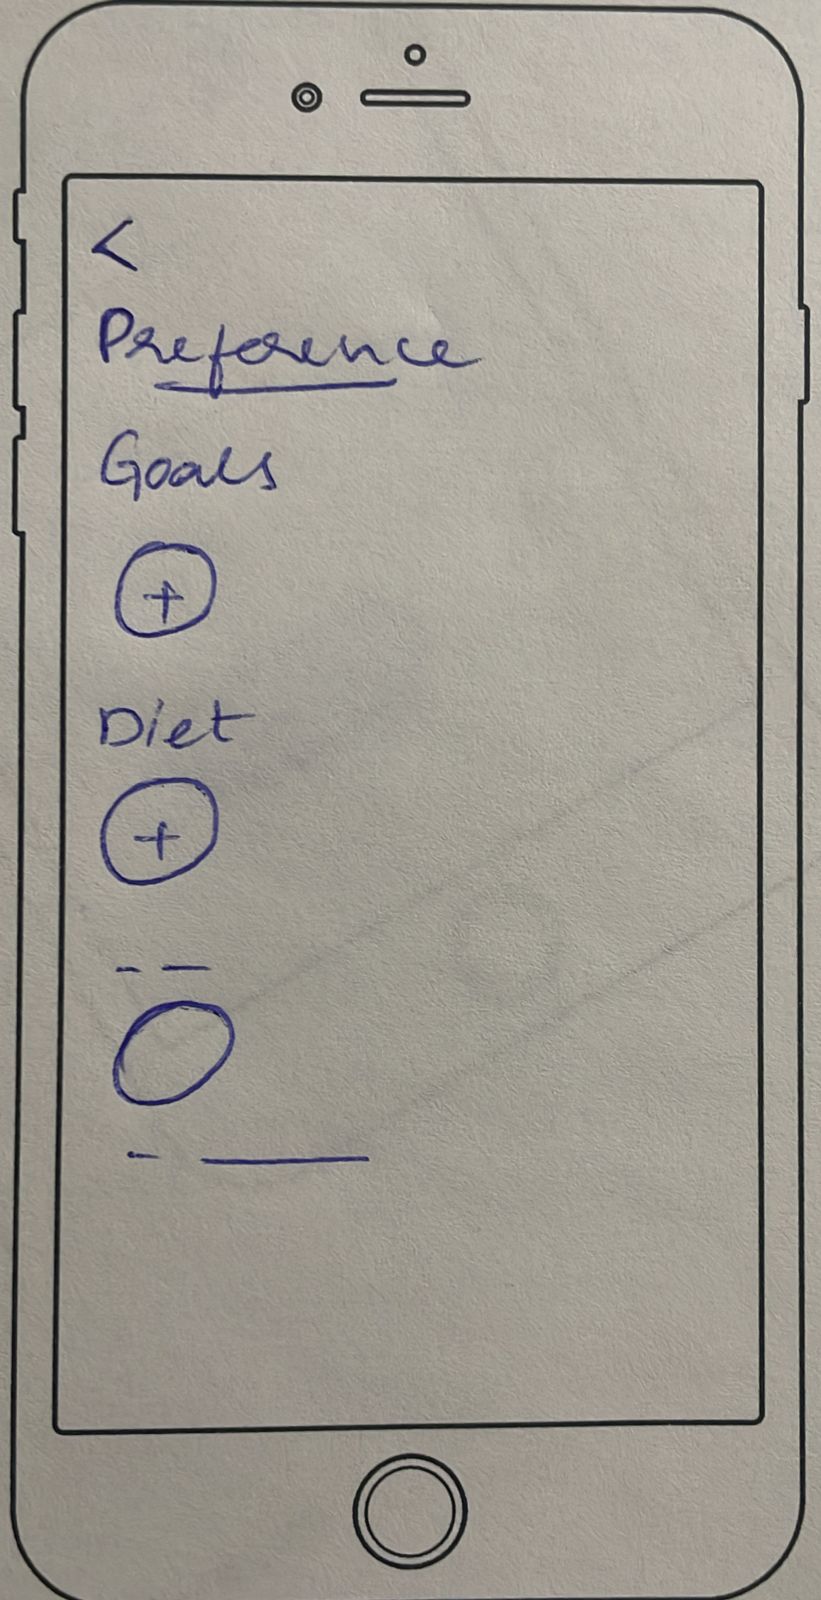 <
Preference
Goals
+
Diet
+